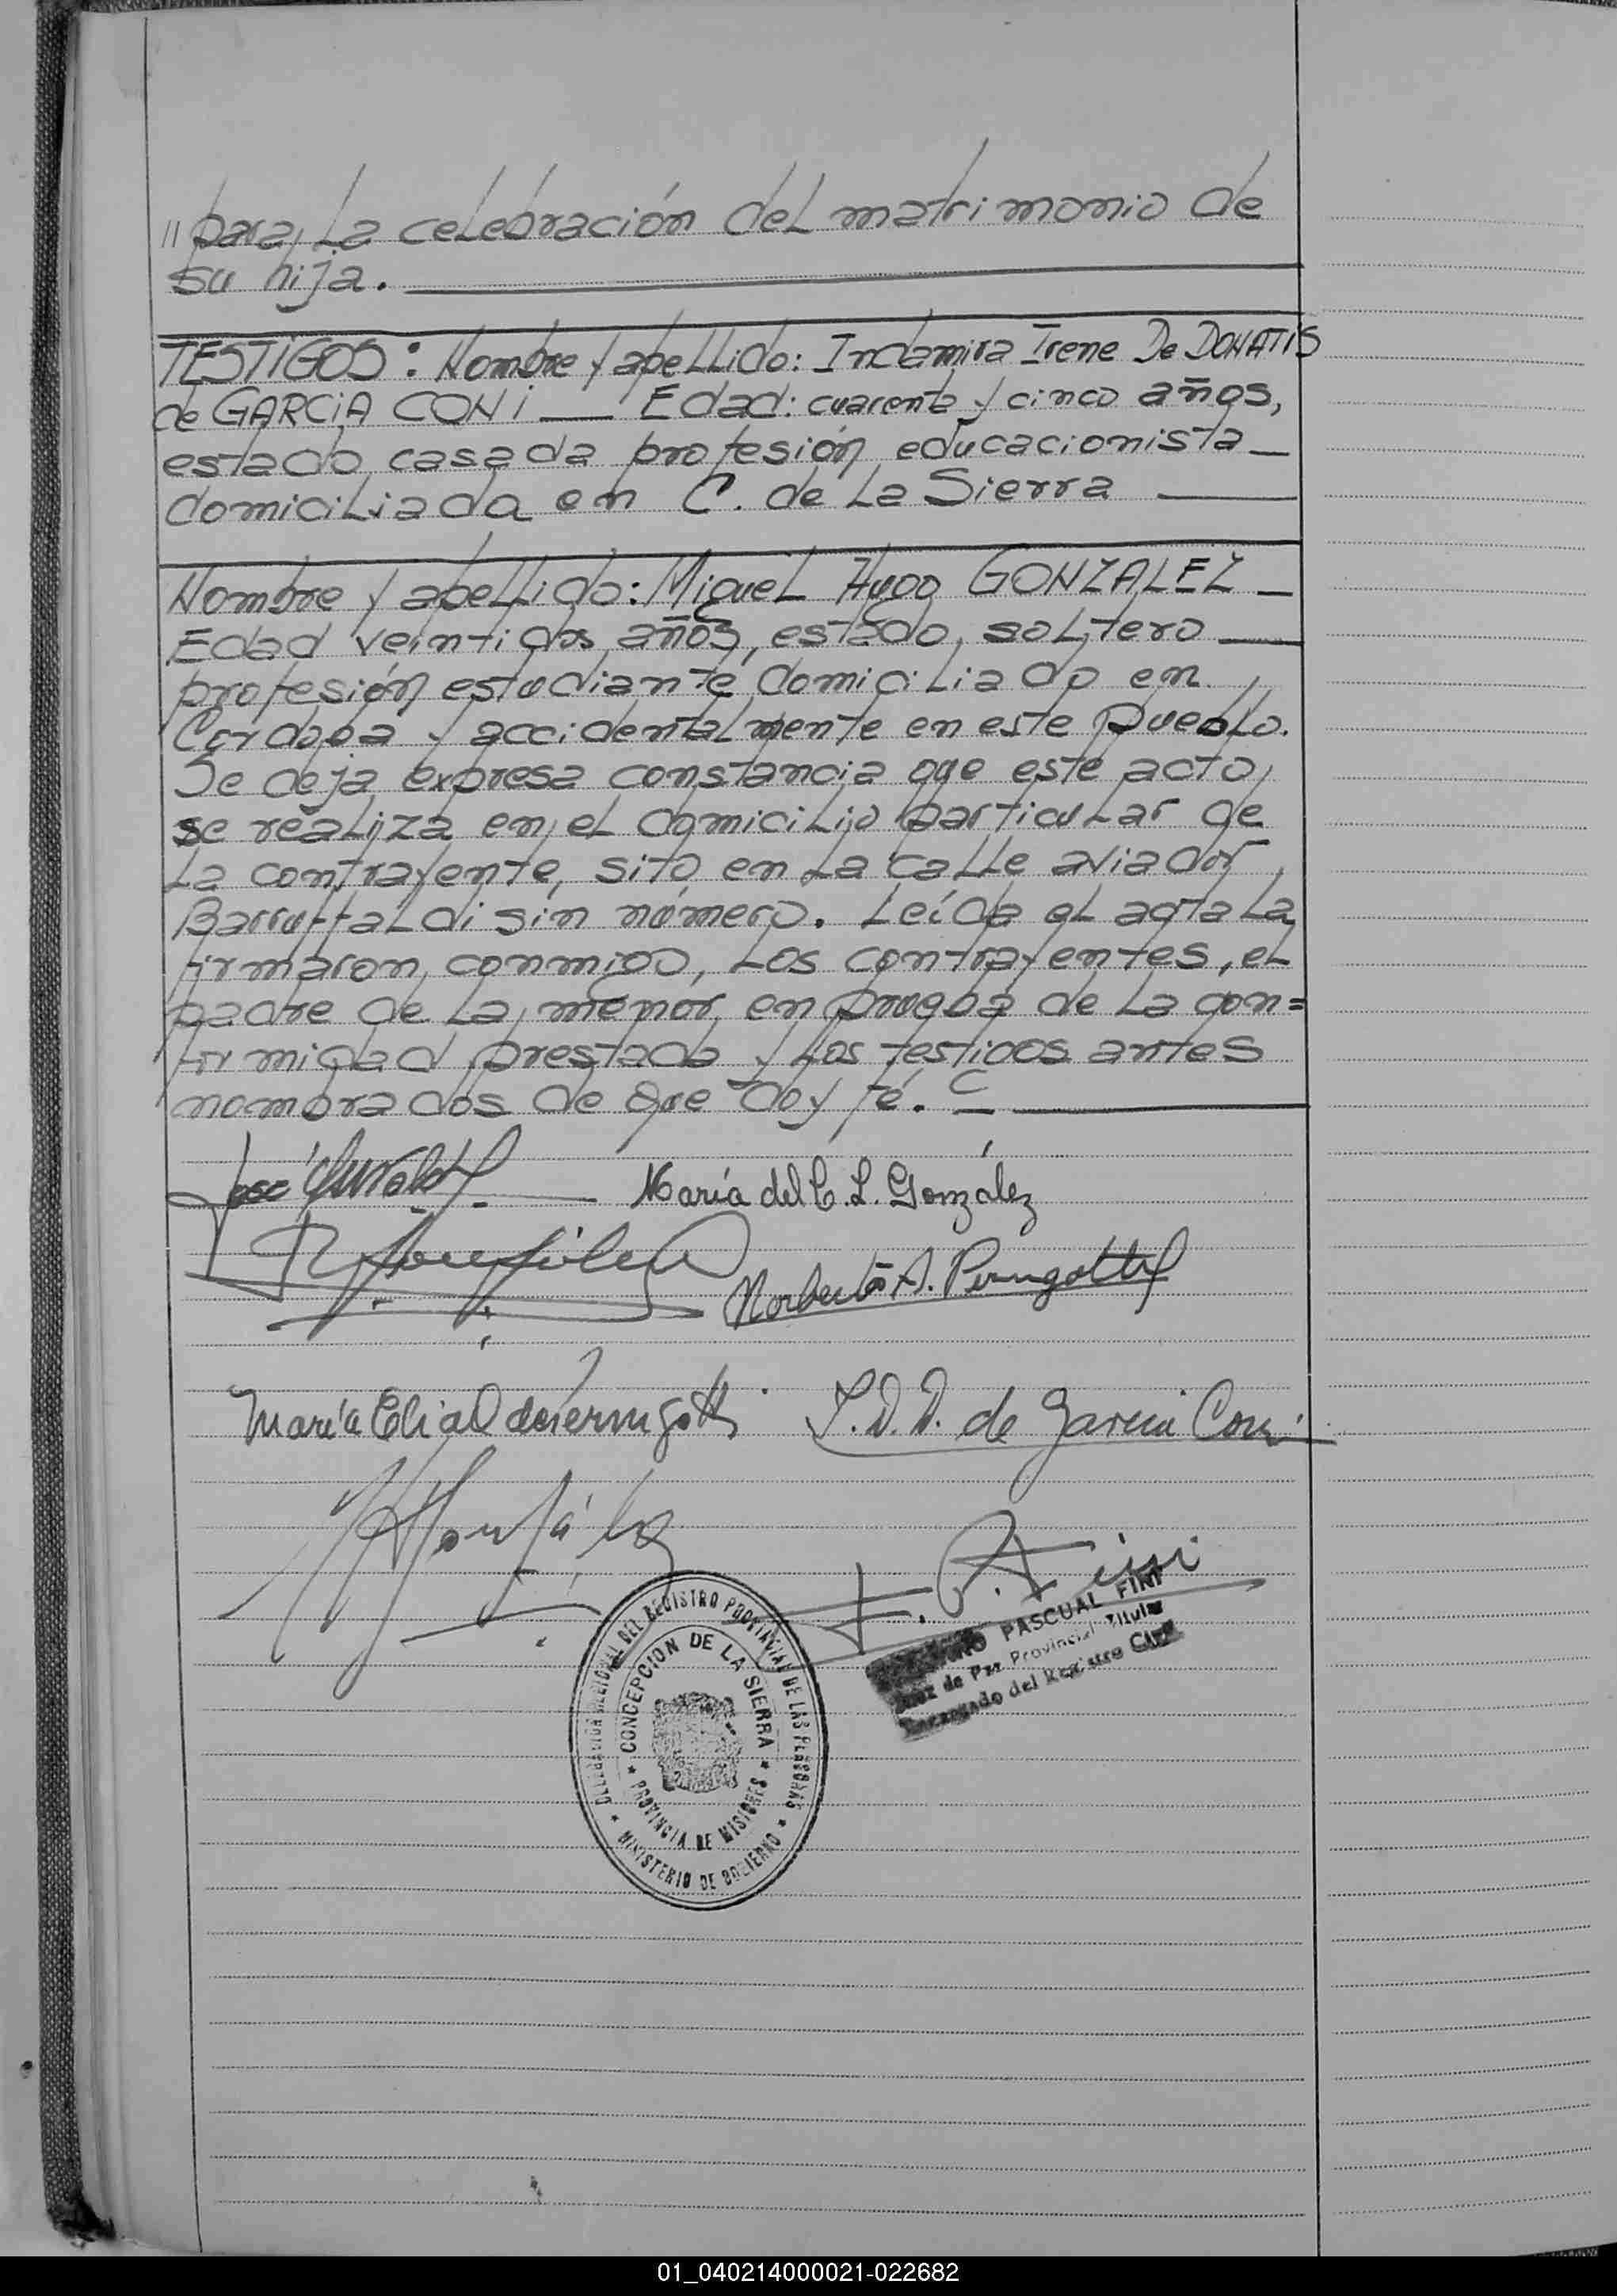 "para la celebración del matrimonio de
su hija.
TESTIGOS: Nombre y apellido: Indamira Irene De DONATIS
de GARCIA CONI Edad: cuarenta y cinco años,
estado casada profesión educacionista
domiciliada en C. de la Sierra
Nombre y apellido: Miguel Hugo GONZALEZ
Edad veintidos años, estado soltero
profesión estudiante domiciliado en
Cordoba y accidentalmente en este pueblo.
Se deja expresa constancia que este acto
se realiza en el domicilio particular de
la contrayente, sito en la calle aviador
Barruffaldi sin número. Leída el acta la
firmaron conmigo, los contrayentes, el
padre de la menor en prueba de la con=
formidad prestada y los testigos antes
nombrados de que doy fé.
José María del C. L. González
Norberto A. Perugotti
María Elia de I.D.D. de Garcia Coni
F. P. Fini
PASCUAL FINI
Juez de Paz Provincial Titular
Encargado del Registro Civil
DEL REGISTRO PROVINCIAL DE LAS PERSONAS
CONCEPCION DE LA SIERRA
PROVINCIA DE MISIONES
MINISTERIO DE GOBIERNO
01_040214000021-022682